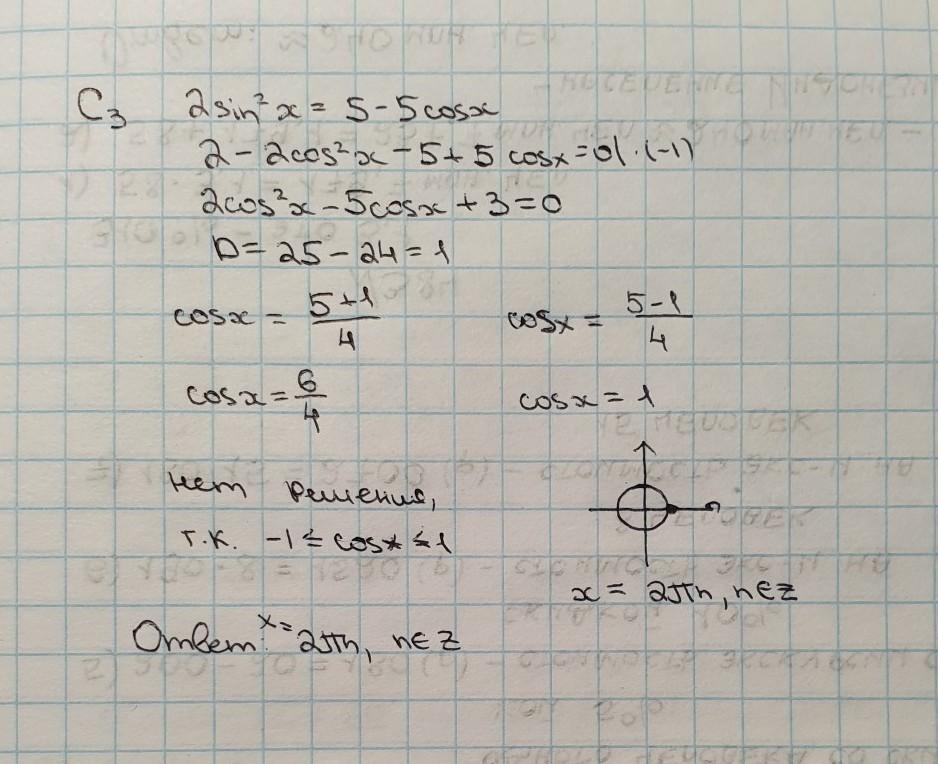 C₃ 2sin²x = 5 - 5cosx
2 - 2cos²x - 5 + 5 cosx = 0 | ·(-1)
2cos²x - 5cosx + 3 = 0
D = 25 - 24 = 1
cosx = (5+1)/4 cosx = (5-1)/4
cosx = 6/4 cosx = 1
нет решения,
т.к. -1 ≤ cosx ≤ 1
x = 2πn, n∈Z
Ответ: x = 2πn, n∈Z